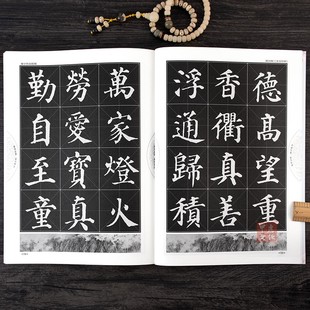 德高望重
香衢真善
浮通歸積
萬家燈火
勞愛寶真
勤自至童